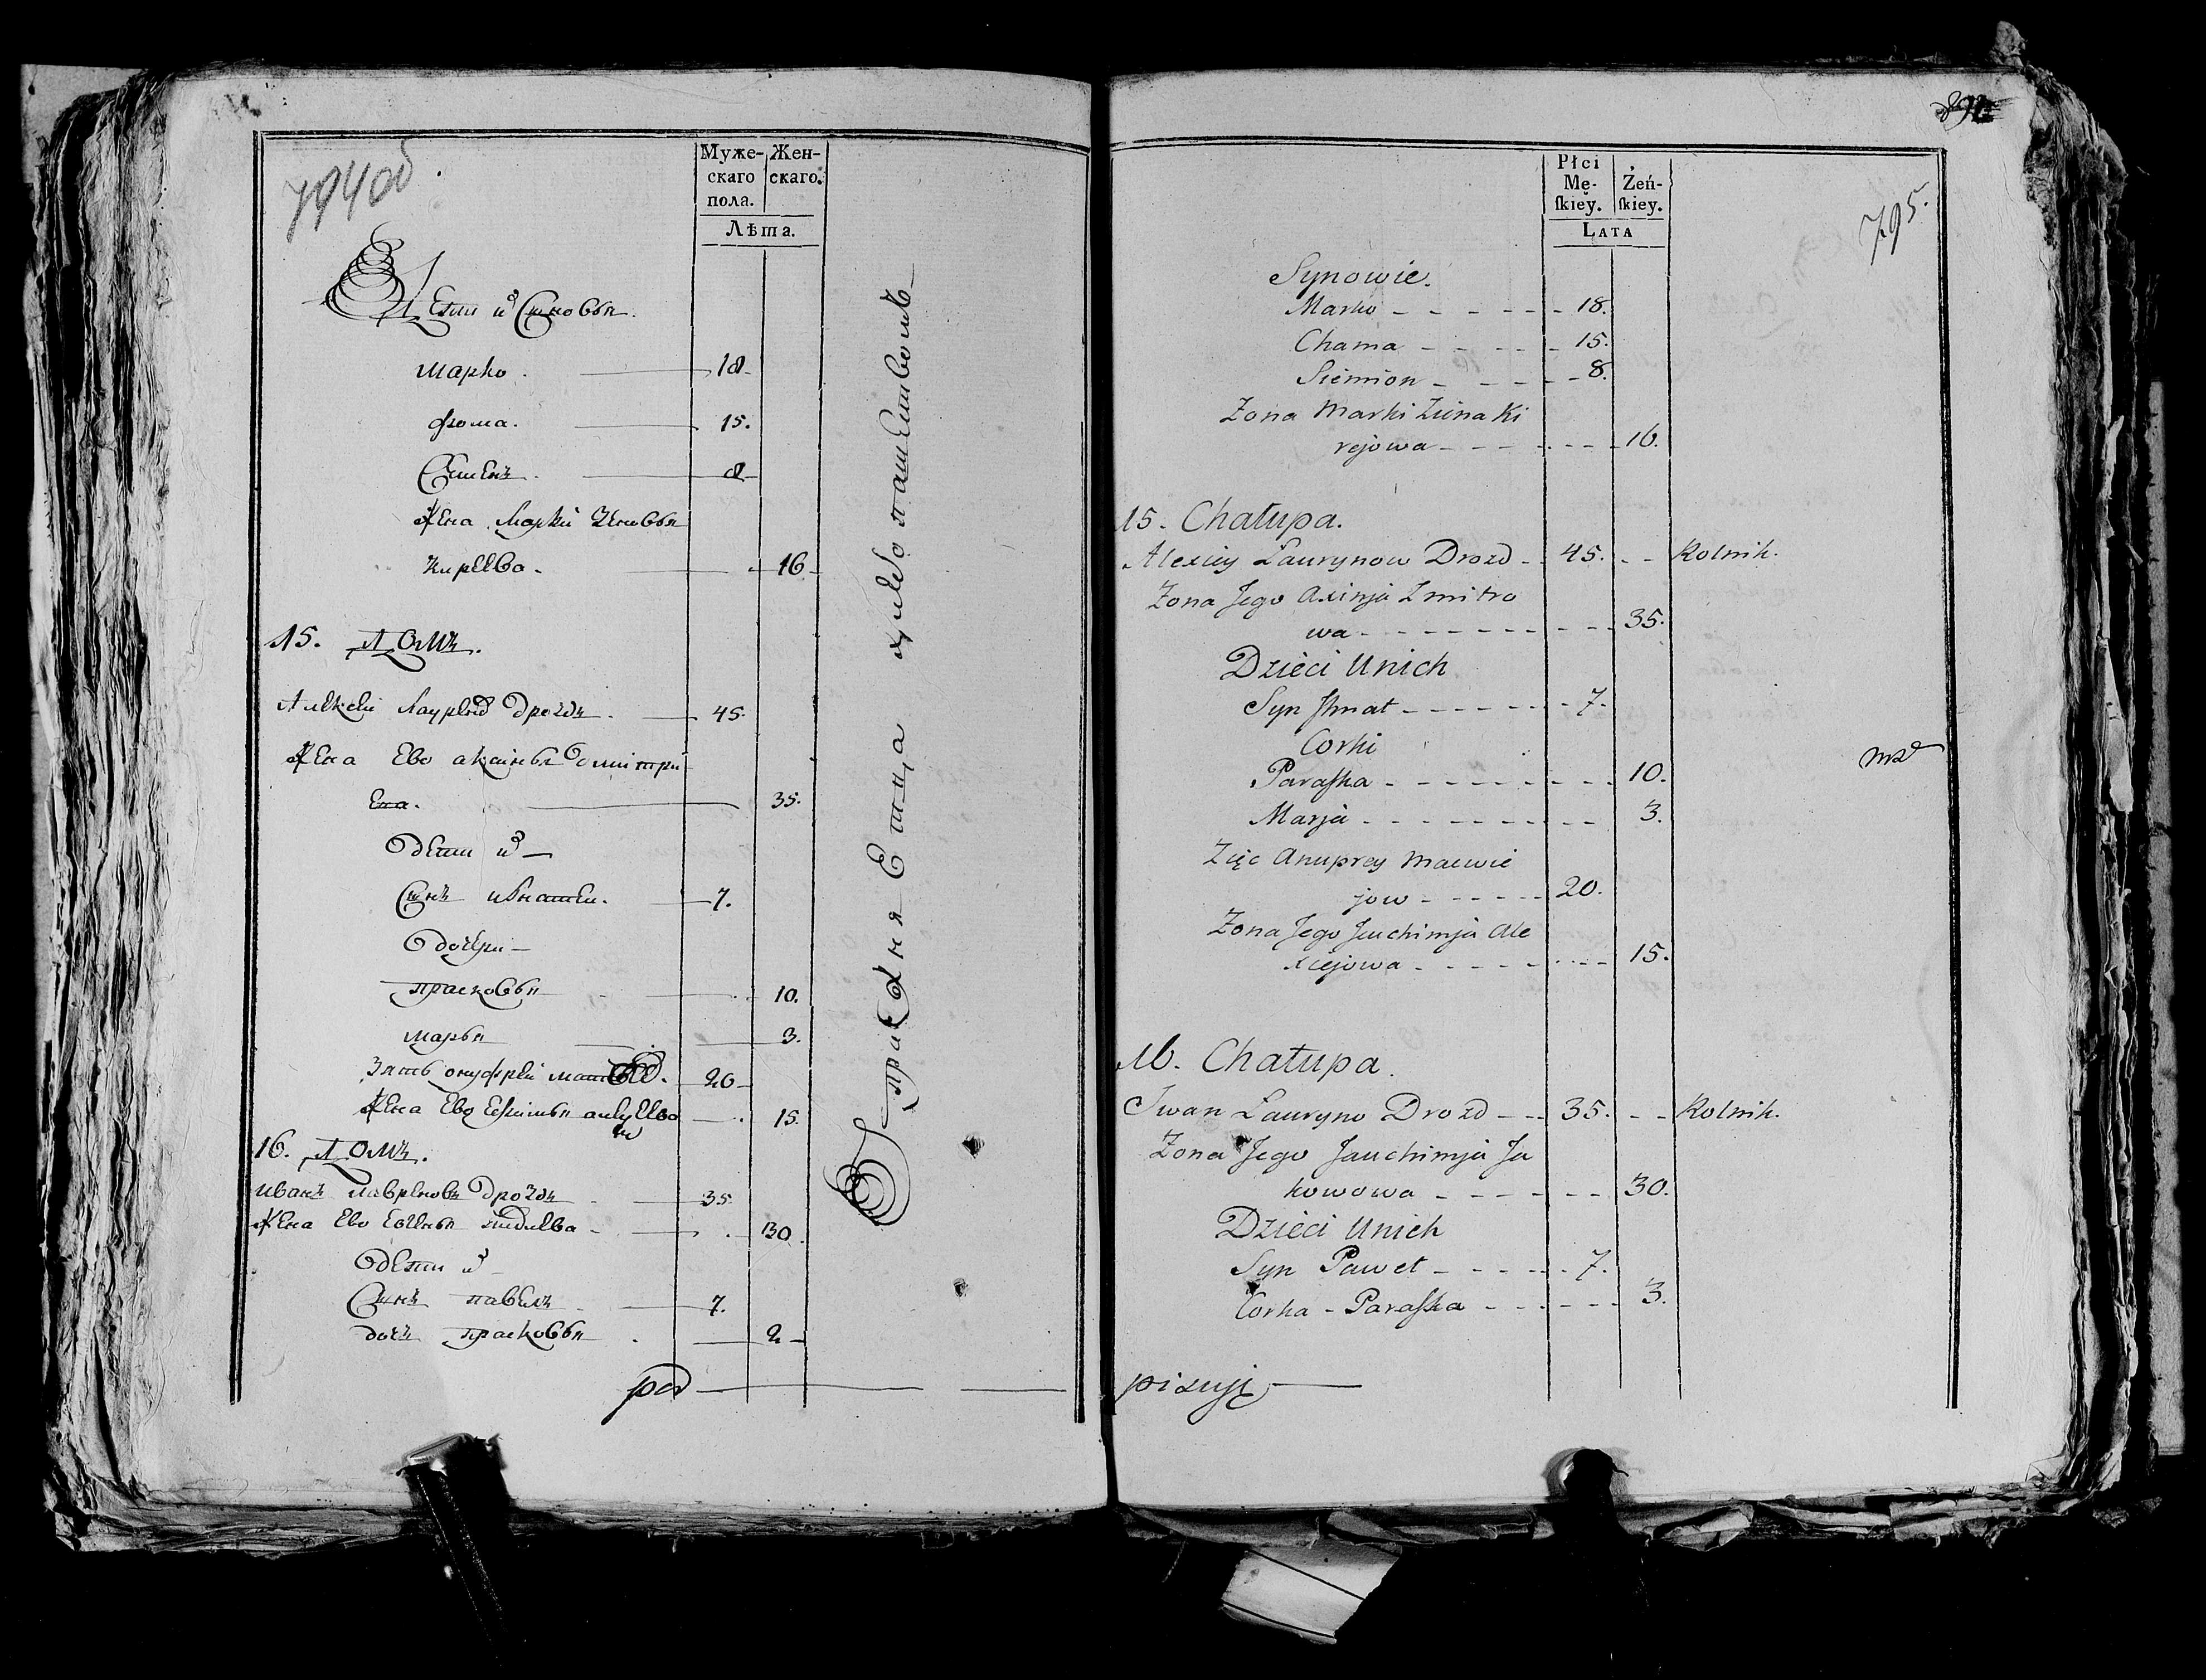 794 об
Муже-
скаго
пола.
Жен-
скаго.
Лѣта.
Дети их Сыновья
марко 18
фома. 15.
Семенъ 8
Жена Марки
Кирѣева 16
15. ДОМЪ.
Алексеи Лаурынов Дрозд 45.
Жена Ево аксинья дмитри
ева. 35.
Дети их
Сынъ игнатеи. 7.
Дочери
прасковья 10.
марья 3.
Зять онуфреи матвеев. 20
Жена Ево Ефимья алексеева 15.
16. ДОМЪ.
иванъ лаврыновъ Дроздъ 35
Жена Ево 30
Дети их
Сынъ павелъ 7.
дочь прасковья 2
Płci
Mę-
ſkiey.
Żeń-
ſkiey.
LATA
795.
Synowie.
Marko 18.
Chama 15.
Siemion 8.
Zona Marki Zinaki
rejowa 16.
15. Chałupa.
Alexiey Laurynow Drozd 45. Rolnik.
Zona Jego Axinja Zmitro
wa 35.
Dzieci Unich
Syn Ihnat 7.
Corki
Paraſka 10.
Marja 3.
Zięc Anuprey Macwie
jow 20.
Zona Jego Jeuchimja Ale
xiejowa 15.
16. Chałupa.
Iwan Lauryno Drozd 35. Rolnik.
Zona Jego Jauchimja Ja
kowowa 30.
Dzieci Unich
Syn Paweł 7.
Corka - Paraſka 3.
pod
pisuję